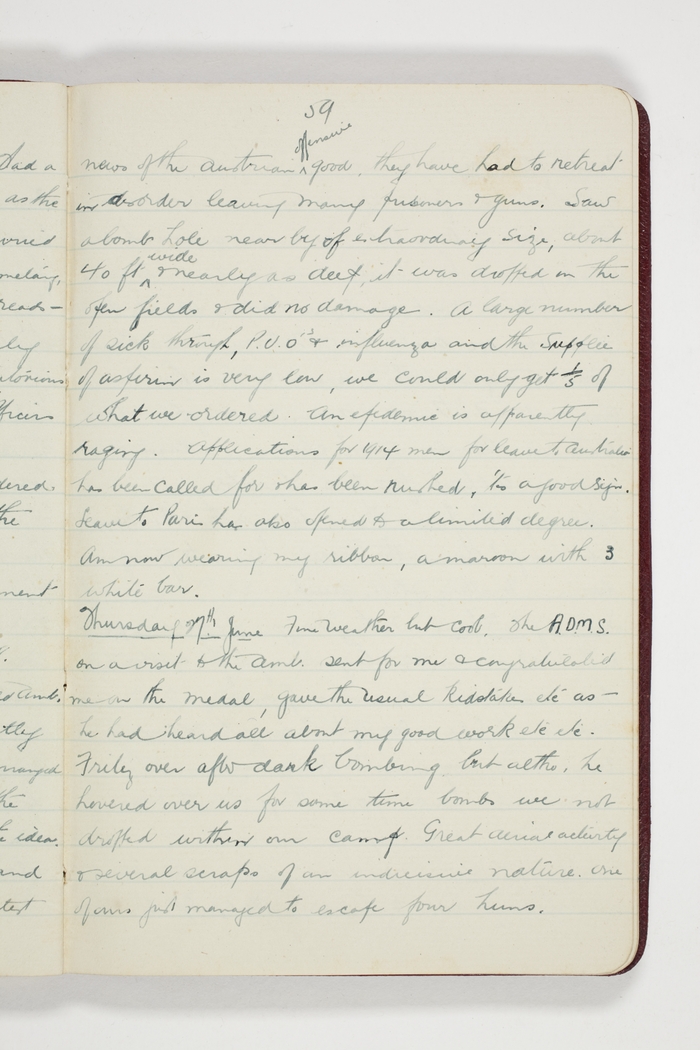 59
news of the Austrian offensive good, they have had to retreat
in disorder leaving many prisoners & guns. Saw
a bomb hole near by of extraordinary size, about
40 ft wide & nearly as deep, it was dropped in the
open fields & did no damage. A large number
of sick through, P.U.O's & influenza and the supplie
of asperin is very low, we could only get 1/3 of
what we ordered. An epidemic is apparently
raging. Applications for 1914 men for leave to Australia
has been called for & has been rushed, 'tis a good sign.
Leave to Paris has also opened to a limited degree.
Am now wearing my ribbon, a maroon with 3
white bar.
Thursday 27th June Fine weather but cool. The A.D.M.S.
on a visit to the Amb. sent for me & congratulated
me on the medal, gave the usual Kidstakes etc as—
he had heard all about my good work etc etc.
Fritz over after dark bombing but altho, he
hovered over us for some time bombs we not
dropped within our camp. Great aerial activity
& several scraps of an indecisive nature. one
of ours just managed to escape four huns.
Had a
as the
reads—
Officers
dered
the
ment
Amb.
the
idea.
and